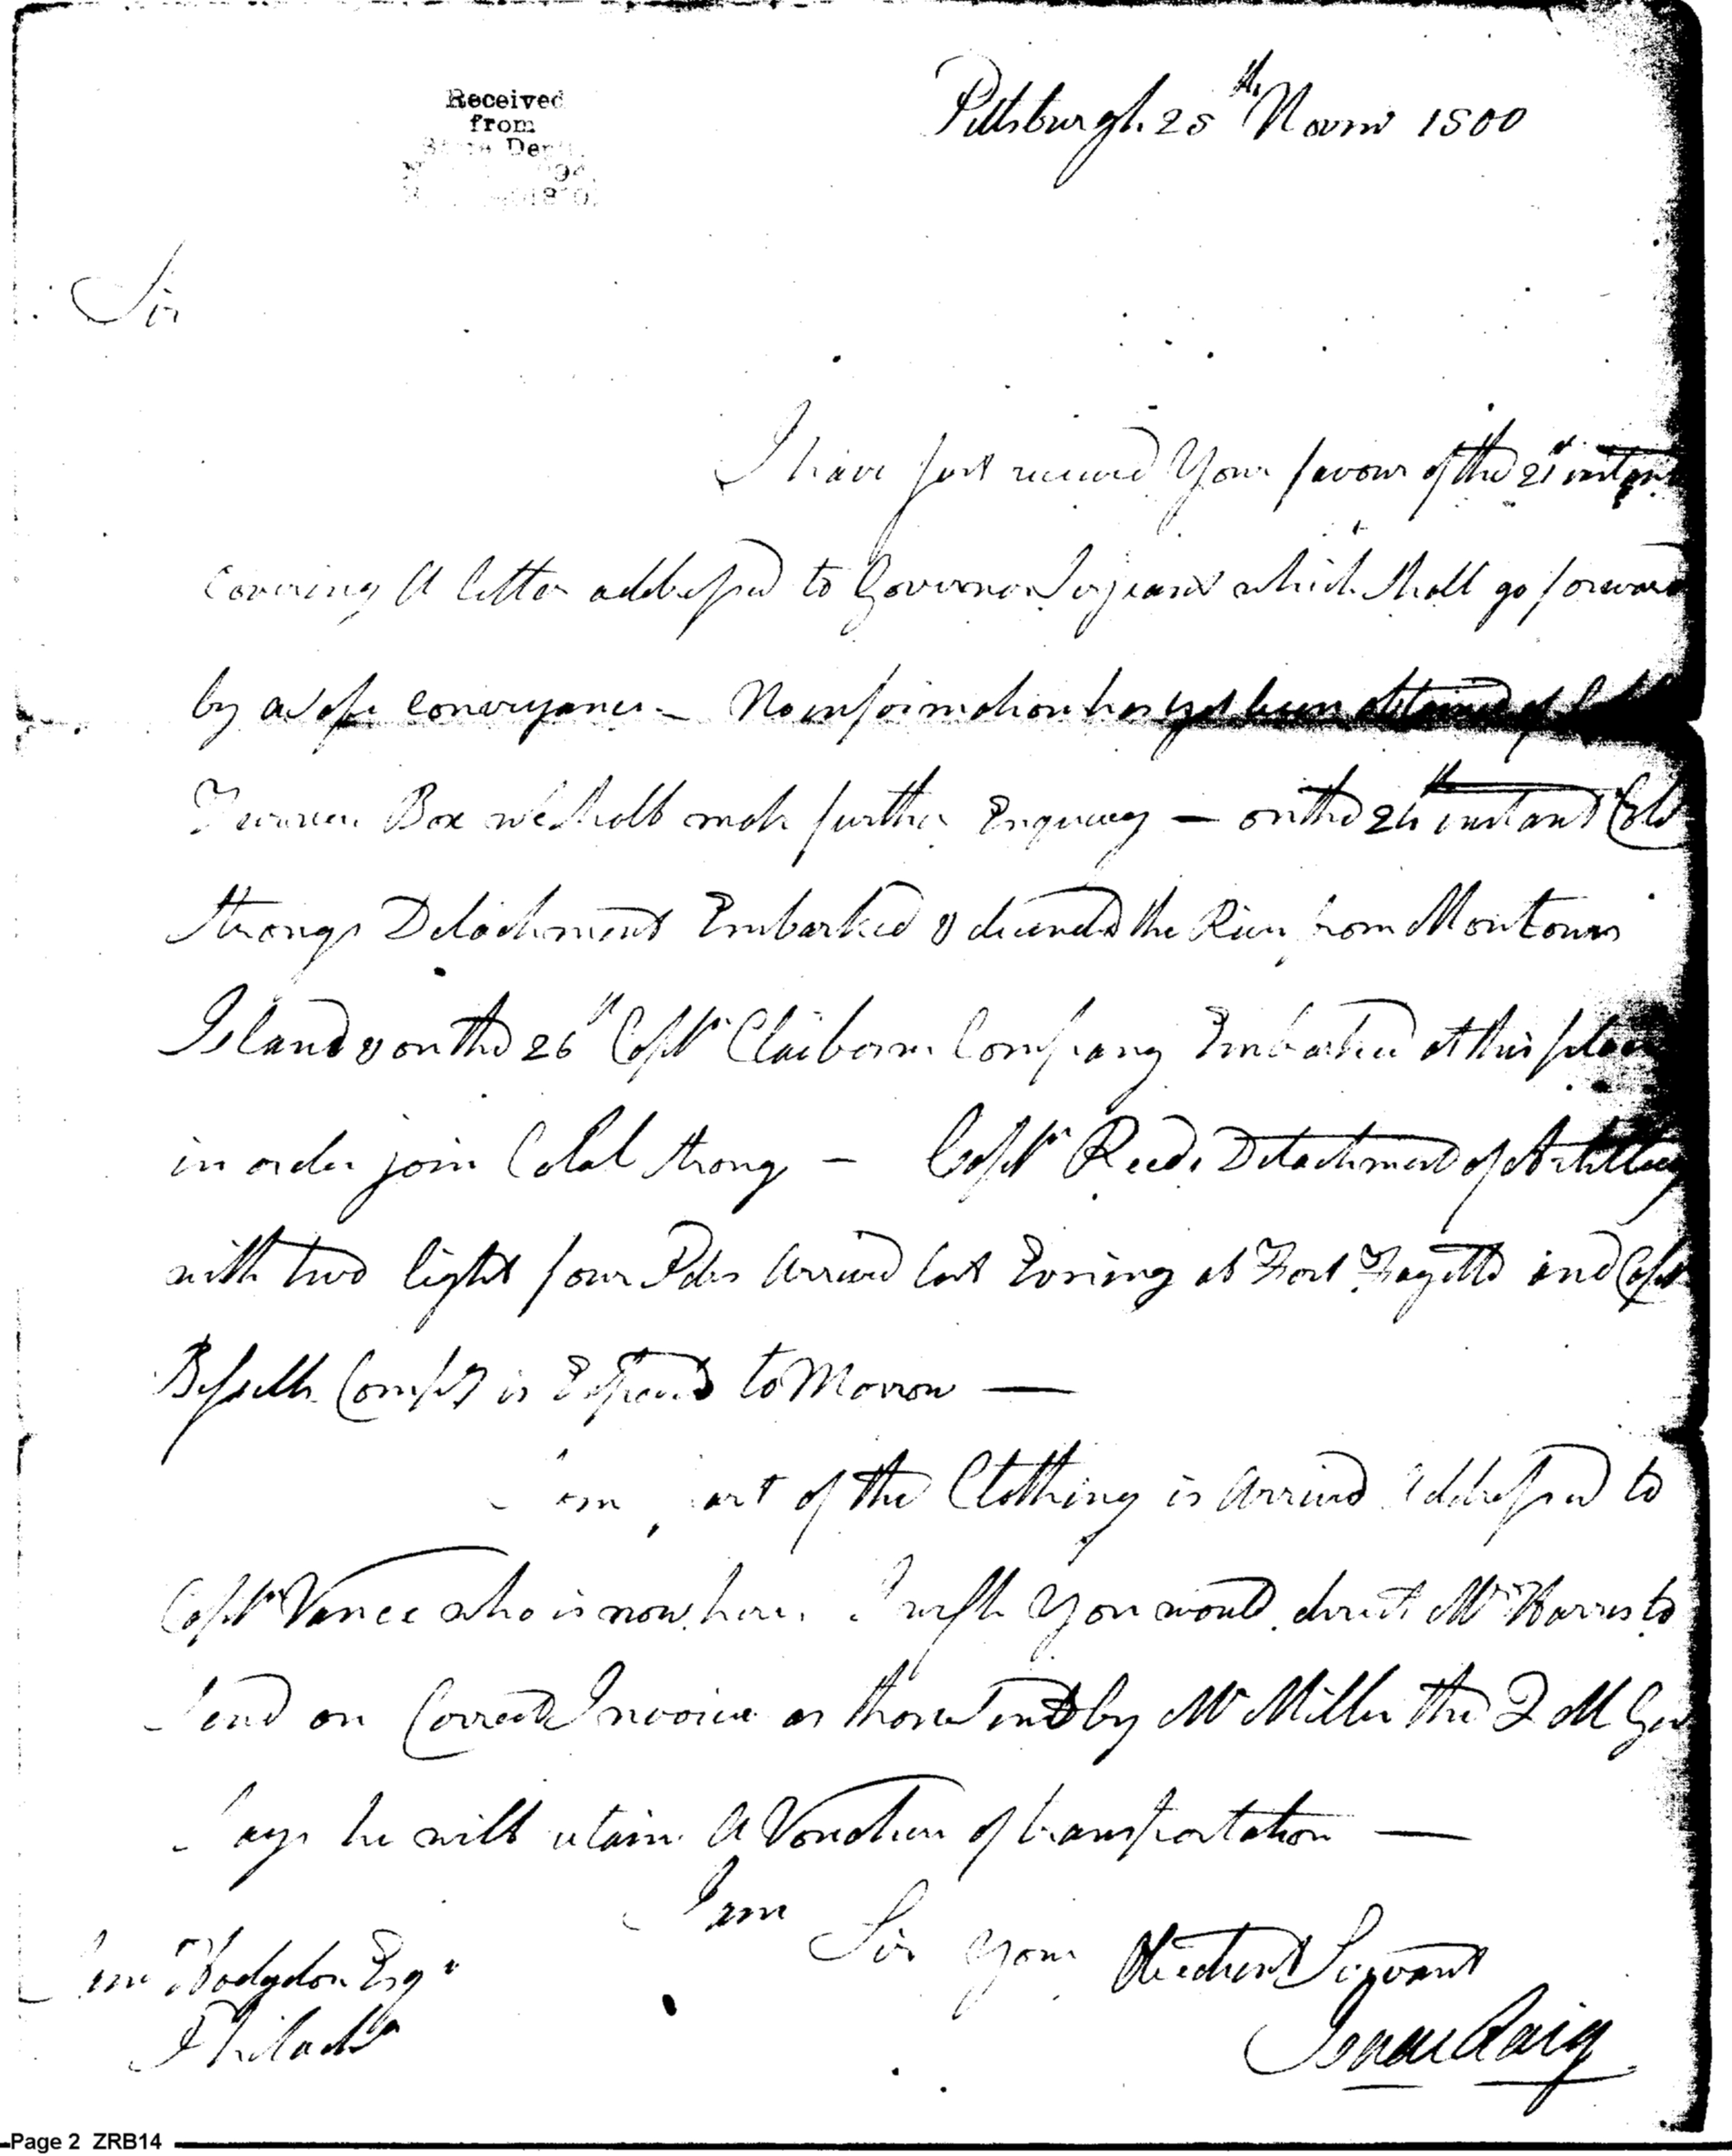 Received
from
State Dept.
Pittsburgh 28th Novmr 1800
Sir
I have just received Your favour of the 21st instant
Covering A letter addressed to Governor Serjeant which shall go forward
by a safe conveyance — No information has yet been obtained of
Box we shall make further Enquiery — on the 24th instant Colo
Strongs Detachment Embarked & decended the River from Montours
Island & on the 26th Captn Claiborn Company Embarked at this place
in order join Colol Strong — Captn Reeds Detachment of Artillery
with two light four Pdrs Arrived last Evening at Fort Fayette and Capt
Bissells Compy is Expected to Morrow —
of the Clothing is Arrived Addressed to
Captn Vance who is now here. I wish You would direct Mr Harris to
Send on Correct Invoices as those Sent by Mr Miller the Q M Genl
Says he will retain A Voucher of transportation —
I am
Sir Your Obedient Servant
Isaac Craig
Saml Hodgdon Esqr
Philada
Page 2 ZRB14